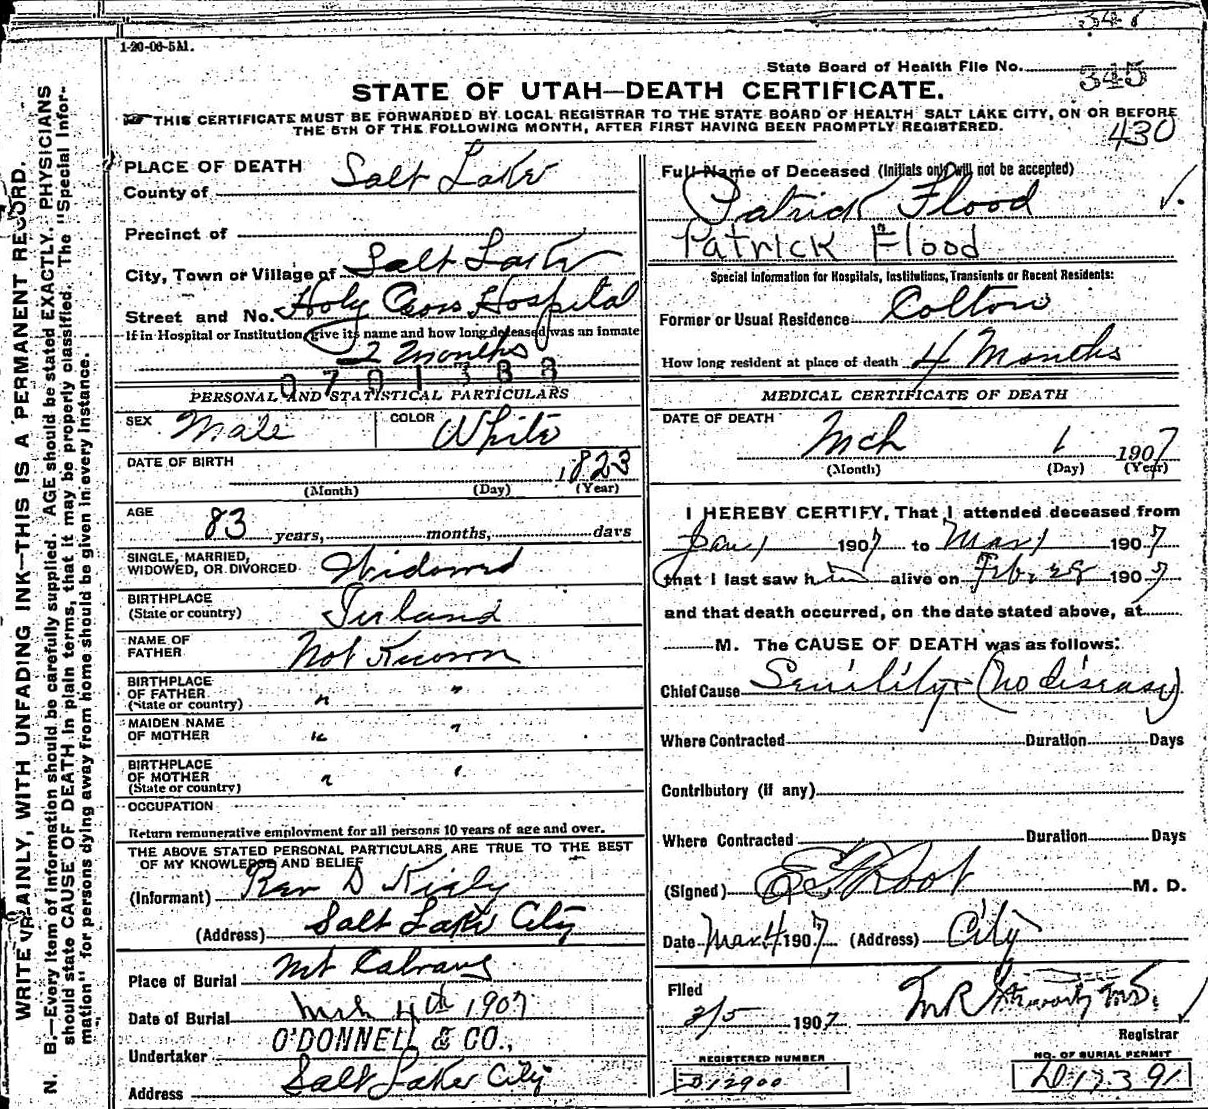 348
1-20-06-5M.
State Board of Health File No. 345
STATE OF UTAH—DEATH CERTIFICATE.
THIS CERTIFICATE MUST BE FORWARDED BY LOCAL REGISTRAR TO THE STATE BOARD OF HEALTH SALT LAKE CITY, ON OR BEFORE
THE 5TH OF THE FOLLOWING MONTH, AFTER FIRST HAVING BEEN PROMPTLY REGISTERED.
430
WRITE PLAINLY, WITH UNFADING INK—THIS IS A PERMANENT RECORD.
N. B.—Every item of information should be carefully supplied. AGE should be stated EXACTLY. PHYSICIANS
should state CAUSE OF DEATH in plain terms, that it may be properly classified. The "Special Infor-
mation" for persons dying away from home should be given in every instance.
PLACE OF DEATH
County of Salt Lake
Precinct of
City, Town or Village of Salt Lake
Street and No. Holy Cross Hospital
If in Hospital or Institution, give its name and how long deceased was an inmate
2 months
0701388
PERSONAL AND STATISTICAL PARTICULARS
SEX Male COLOR White
DATE OF BIRTH 1823
(Month) (Day) (Year)
AGE 83 years, months, days
SINGLE, MARRIED,
WIDOWED, OR DIVORCED Widowed
BIRTHPLACE
(State or country) Ireland
NAME OF
FATHER Not Known
BIRTHPLACE
OF FATHER
(State or country) " "
MAIDEN NAME
OF MOTHER " "
BIRTHPLACE
OF MOTHER
(State or country) " "
OCCUPATION
Return remunerative employment for all persons 10 years of age and over.
THE ABOVE STATED PERSONAL PARTICULARS ARE TRUE TO THE BEST
OF MY KNOWLEDGE AND BELIEF
(Informant) Rev D Kiely
(Address) Salt Lake City
Place of Burial Mt Calvary
Date of Burial Mch 4th 1907
Undertaker O'DONNELL & CO.,
Address Salt Lake City
Full Name of Deceased (Initials only will not be accepted)
Patrick Flood
PATRICK Flood
Special Information for Hospitals, Institutions, Transients or Recent Residents:
Former or Usual Residence Colton
How long resident at place of death 4 Months
MEDICAL CERTIFICATE OF DEATH
DATE OF DEATH Mch 1 1907
(Month) (Day) (Year)
I HEREBY CERTIFY, That I attended deceased from
Jan 1 1907 to Mar 1 1907
that I last saw him alive on Feb 28 1907
and that death occurred, on the date stated above, at
M. The CAUSE OF DEATH was as follows:
Chief Cause Senility (no disease)
Where Contracted Duration Days
Contributory (if any)
Where Contracted Duration Days
(Signed) Root M. D.
Date Mar 4 1907 (Address) City
Filed
3/5 1907 M R
Registrar
REGISTERED NUMBER
D12900
NO. OF BURIAL PERMIT
D17391